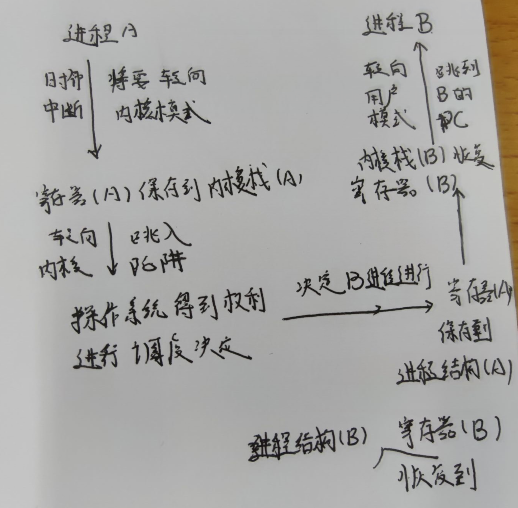 进程A
时钟
中断
将要转向
内核模式
寄存器(A)保存到内核栈(A)
转向
内核
跳入
陷阱
操作系统得到权利
进行调度决定
决定B进程进行
寄存器(A)
保存到
进程结构(A)
进程结构(B)
寄存器(B)
恢复到
内核栈(B)恢复
寄存器(B)
转向
用户
模式
跳到
B的
PC
进程B